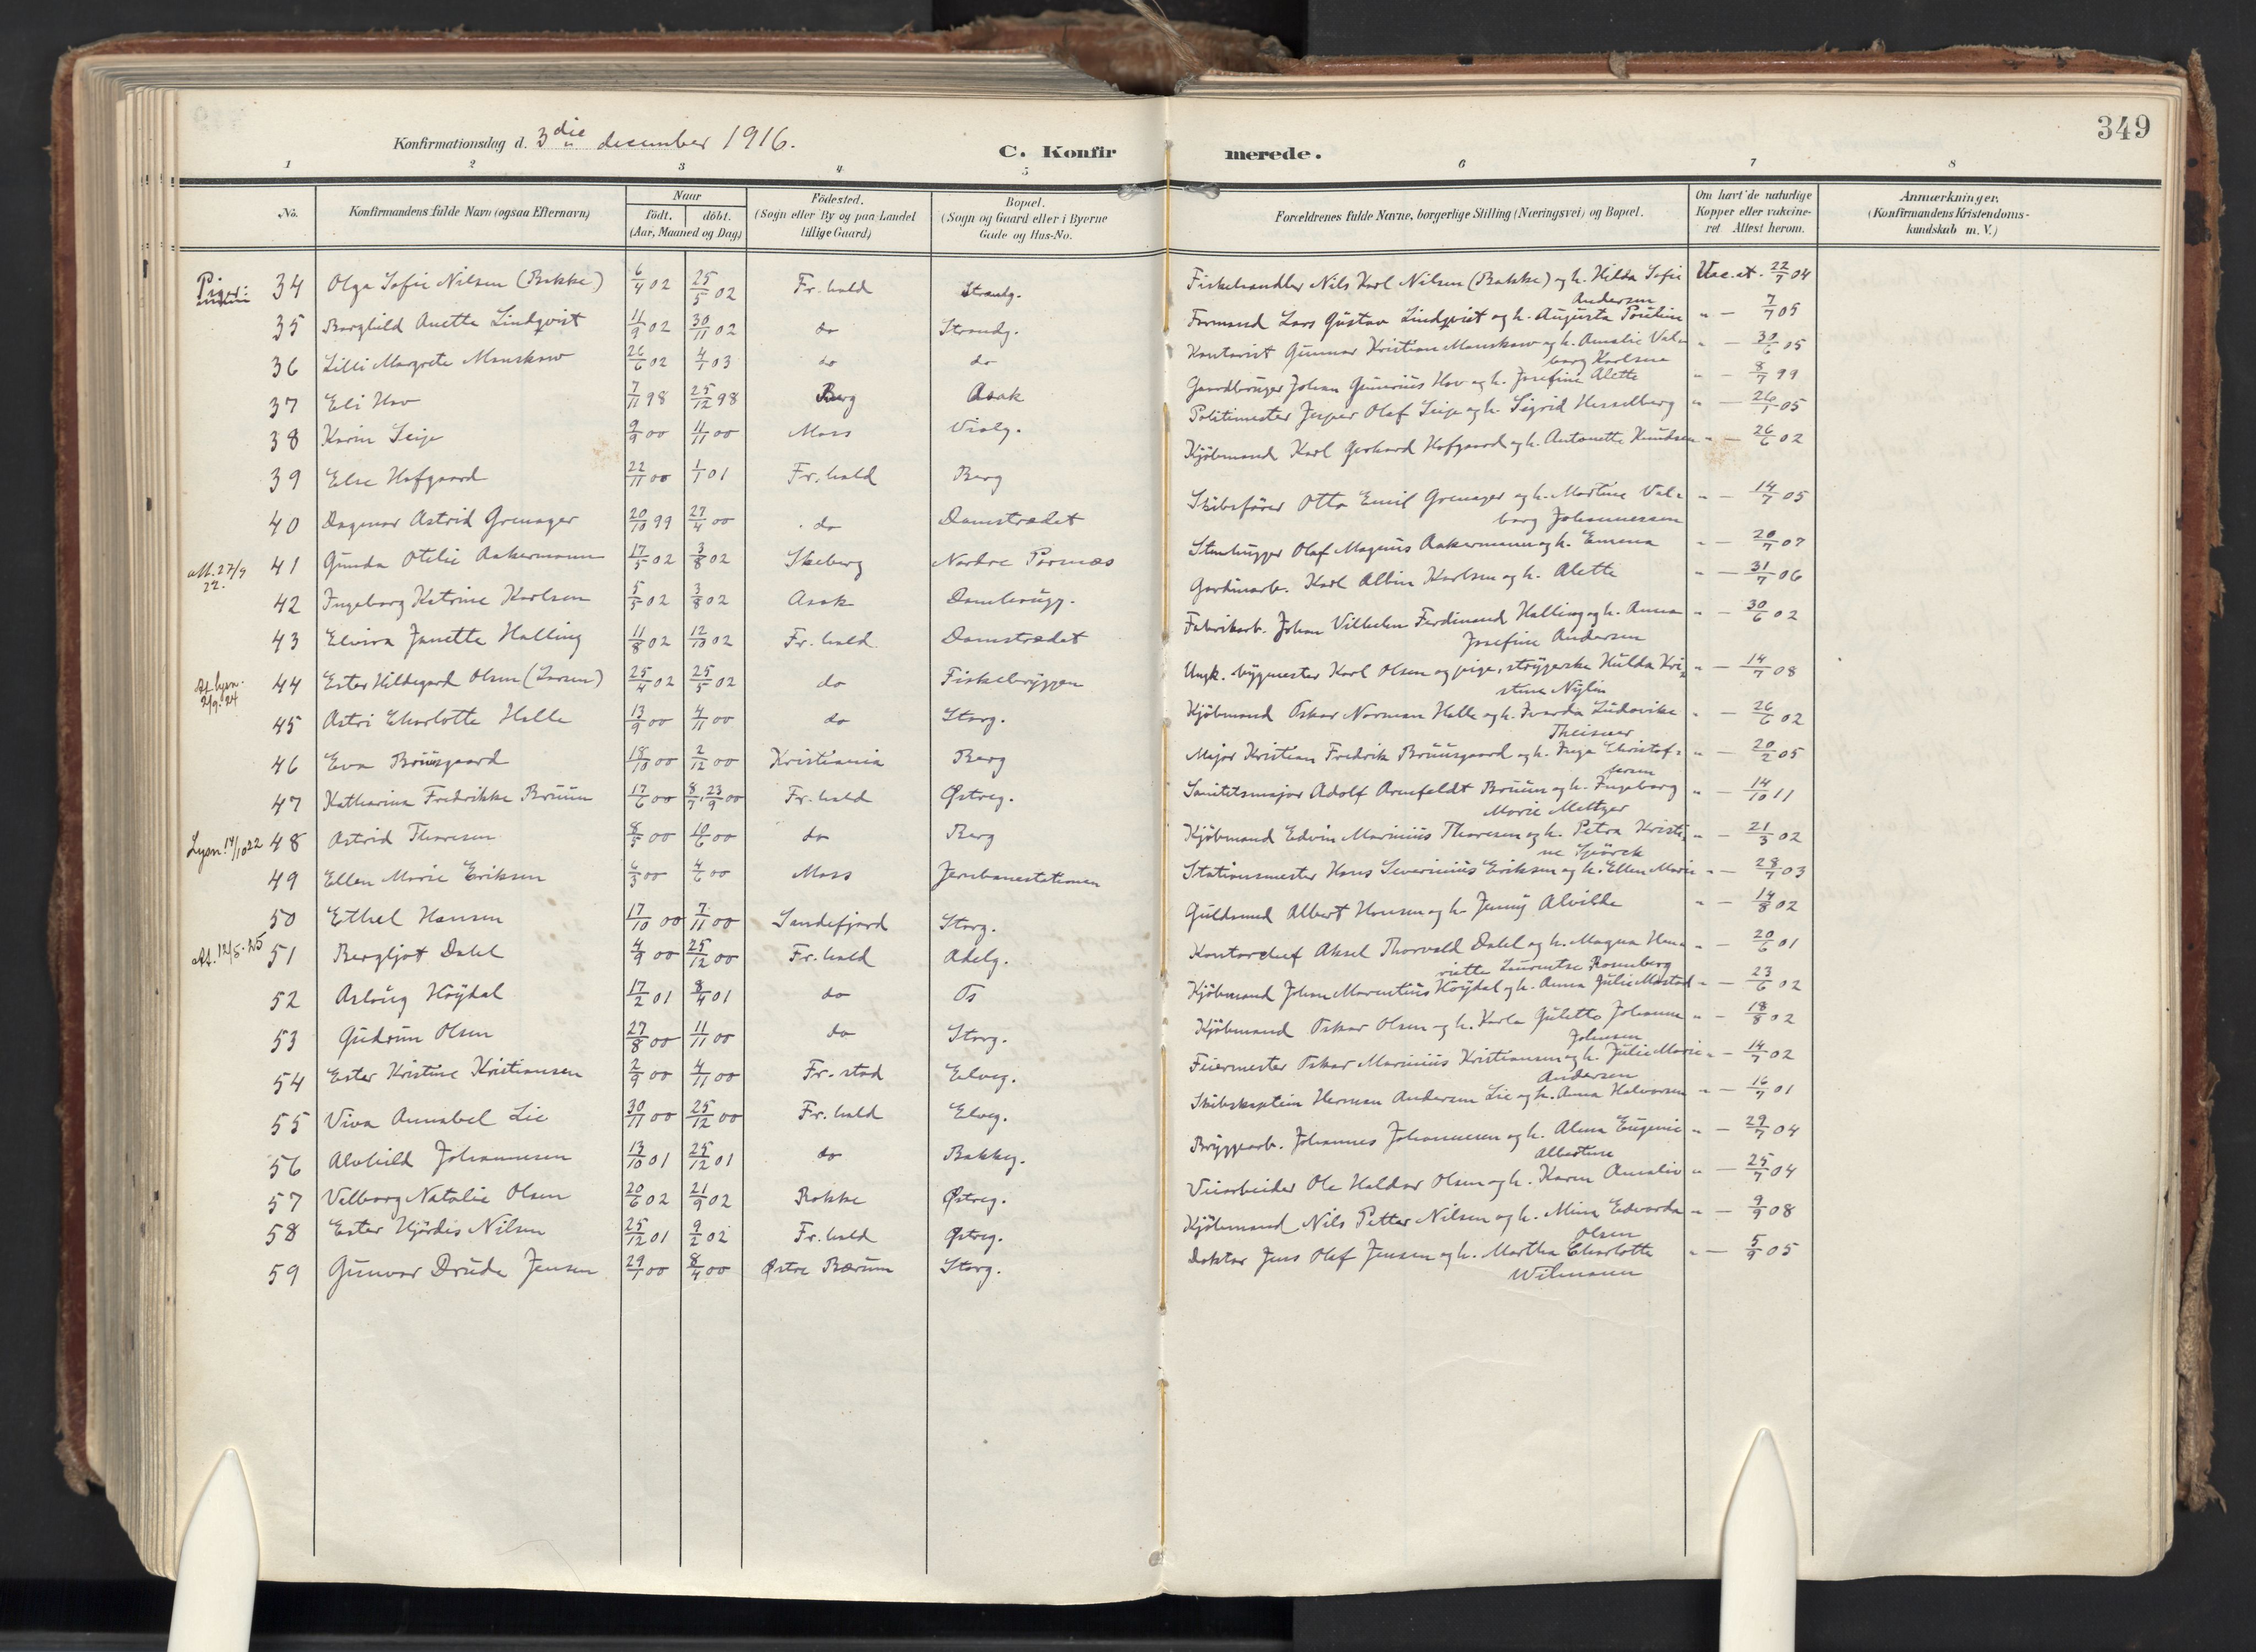 349
Konfirmationsdag d. 3die december 1916.
C. Konfir merede.
1 2 3 4 5 6 7 8
No. Konfirmandens fulde Navn (ogsaa Efternavn) Naar født. døbt. (Aar, Maaned og Dag) Födested. (Sogn eller By og paa Landet tillige Gaard) Bopæl. (Sogn og Gaard eller i Byerne Gade og Hus-No. Forældrenes fulde Navne, borgerlige Stilling (Næringsvei) og Bopæl. Om havt de naturlige Kopper eller vakcineret. Attest herom. Anmærkninger. (Konfirmandens Kristendomskundskab m. V.)
Piger: 34 Olga Sofie Nilsen (Bakke) 6/4 02 25/5 02 Fr.hald Strandg. Fiskehandler Nils Karl Nilsen (Bakke) og h. Hilda Sofie Andersen Vac.at. 22/7 04
35 Borghild Anette Lindqvist 11/9 02 30/11 02 do Strandg. Formand Lars Gustav Lindqvist og h. Augusta Pouline " — 7/7 05
36 Lilli Margrete Manskow 26/6 02 4/1 03 do do Kontorist Gunnar Kristian Manskow og h. Amalie Valborg Karlsen " — 30/6 05
37 Eli Hov 7/11 98 25/12 98 Berg Asak Gaardbruger Johan Gunerius Hov og h. Josefine Alette " — 8/7 99
38 Karin Seip 9/9 00 11/11 00 Moss Violg. Politimester Jesper Olaf Seip og h. Sigrid Hesselberg " — 26/1 05
39 Else Hofgaard 22/11 00 1/1 01 Fr.hald Berg Kjöbmand Karl Gerhard Hofgaard og h. Antonette Knudsen " — 26/6 02
40 Dagmar Astrid Grenager 20/10 99 27/4 00 do Damstrædet Skibsfører Otto Emil Grenager og h. Martine Valborg Johannessen " — 14/7 05
att. 27/9 22. 41 Gunda Otilie Aakermann 17/5 02 3/8 02 Skeberg Nordre Pornæs Stenhugger Olaf Magnus Aakermann og h. Emma " — 20/7 07
42 Ingeborg Katrine Karlsen 5/5 02 3/8 02 Asak Dambrygg. Gardinarb. Karl Albin Karlsen og h. Alette " — 31/7 06
43 Elvira Janette Halling 11/8 02 12/10 02 Fr.hald Damstrædet Fabrikarb. Johan Vilhelm Ferdinand Halling og h. Anna Josefine Andersen " — 30/6 02
At. lysn. 2/9.24 44 Ester Hildegard Olsen (Larsen) 25/4 02 25/5 02 do Fiskebryggen Ungk. bygmester Karl Olsen og pige, strygerske Hulda Kristine Nylin " — 14/7 08
45 Astri Charlotte Helle 13/9 00 4/11 00 do Storg. Kjöbmand Oskar Norman Helle og h. Ivarda Ludovike Theisner " — 26/6 02
46 Eva Bruusgaard 18/10 00 2/12 00 Kristiania Berg Major Kristian Fredrik Bruusgaard og h. Inga Christofersen " — 20/2 05
47 Katharina Fredrikke Bruun 17/6 00 8/7, 23/9 00 Fr.hald Østreg. Sanitetsmajor Adolf Armfeldt Bruun og h. Ingeborg Marie Meltzer " — 14/10 11
Lysn. 14/10 22 48 Astrid Thoresen 8/5 00 10/6 00 do Berg Kjöbmand Edvin Marinius Thoresen og h. Petra Kristine Spörck " — 21/3 02
49 Ellen Marie Eriksen 4/3 00 4/6 00 Moss Jernbanestationen Stationsmester Hans Severinius Eriksen og h. Ellen Marie " — 28/7 03
50 Ethel Hansen 17/10 00 7/11 00 Sandefjord Storg. Guldsmed Albert Hansen og h. Jenny Alvilde " — 14/8 02
At. 12/5.25 51 Bergljot Dahl 4/9 00 25/12 00 Fr.hald Adelg. Kontorchef Aksel Thorvald Dahl og h. Magna Henriette Laurentse Rosenberg " — 20/6 01
52 Aslaug Höydal 17/2 01 8/4 01 do Os Kjöbmand Johan Marentius Höydal og h. Anna Julie Mostad " — 23/6 02
53 Gudrun Olsen 27/8 00 11/11 00 do Storg. Kjöbmand Oskar Olsen og h. Karla Juletta Johanne Johnsen " — 18/8 02
54 Ester Kristine Kristiansen 2/9 00 4/11 00 Fr.stad Elveg. Feiermester Oskar Marinius Kristiansen og h. Julie Marie Andersen " — 14/7 02
55 Viva Annabel Lie 30/11 00 25/12 00 Fr.hald Elveg. Skibskaptein Herman Andersen Lie og h. Anna Halvorsen " — 16/7 01
56 Alvhild Johannesen 13/10 01 25/12 01 do Bakkeg. Bryggearb. Johannes Johannesen og h. Alma Eugenie Albertine " — 29/7 04
57 Valborg Natalie Olsen 20/6 02 21/9 02 Rokke Østreg. Veiarbeider Ole Haldor Olsen og h. Karen Amalie " — 25/7 04
58 Ester Hjördis Nilsen 25/12 01 9/2 02 Fr.hald Østreg. Kjöbmand Nils Petter Nilsen og h. Mina Edvarda Olsen " — 9/9 08
59 Gunvor Drude Jensen 29/1 00 8/4 00 Østre Bærum Storg. Doktor Jens Olaf Jensen og h. Martha Charlotte Wilmann " — 5/9 05